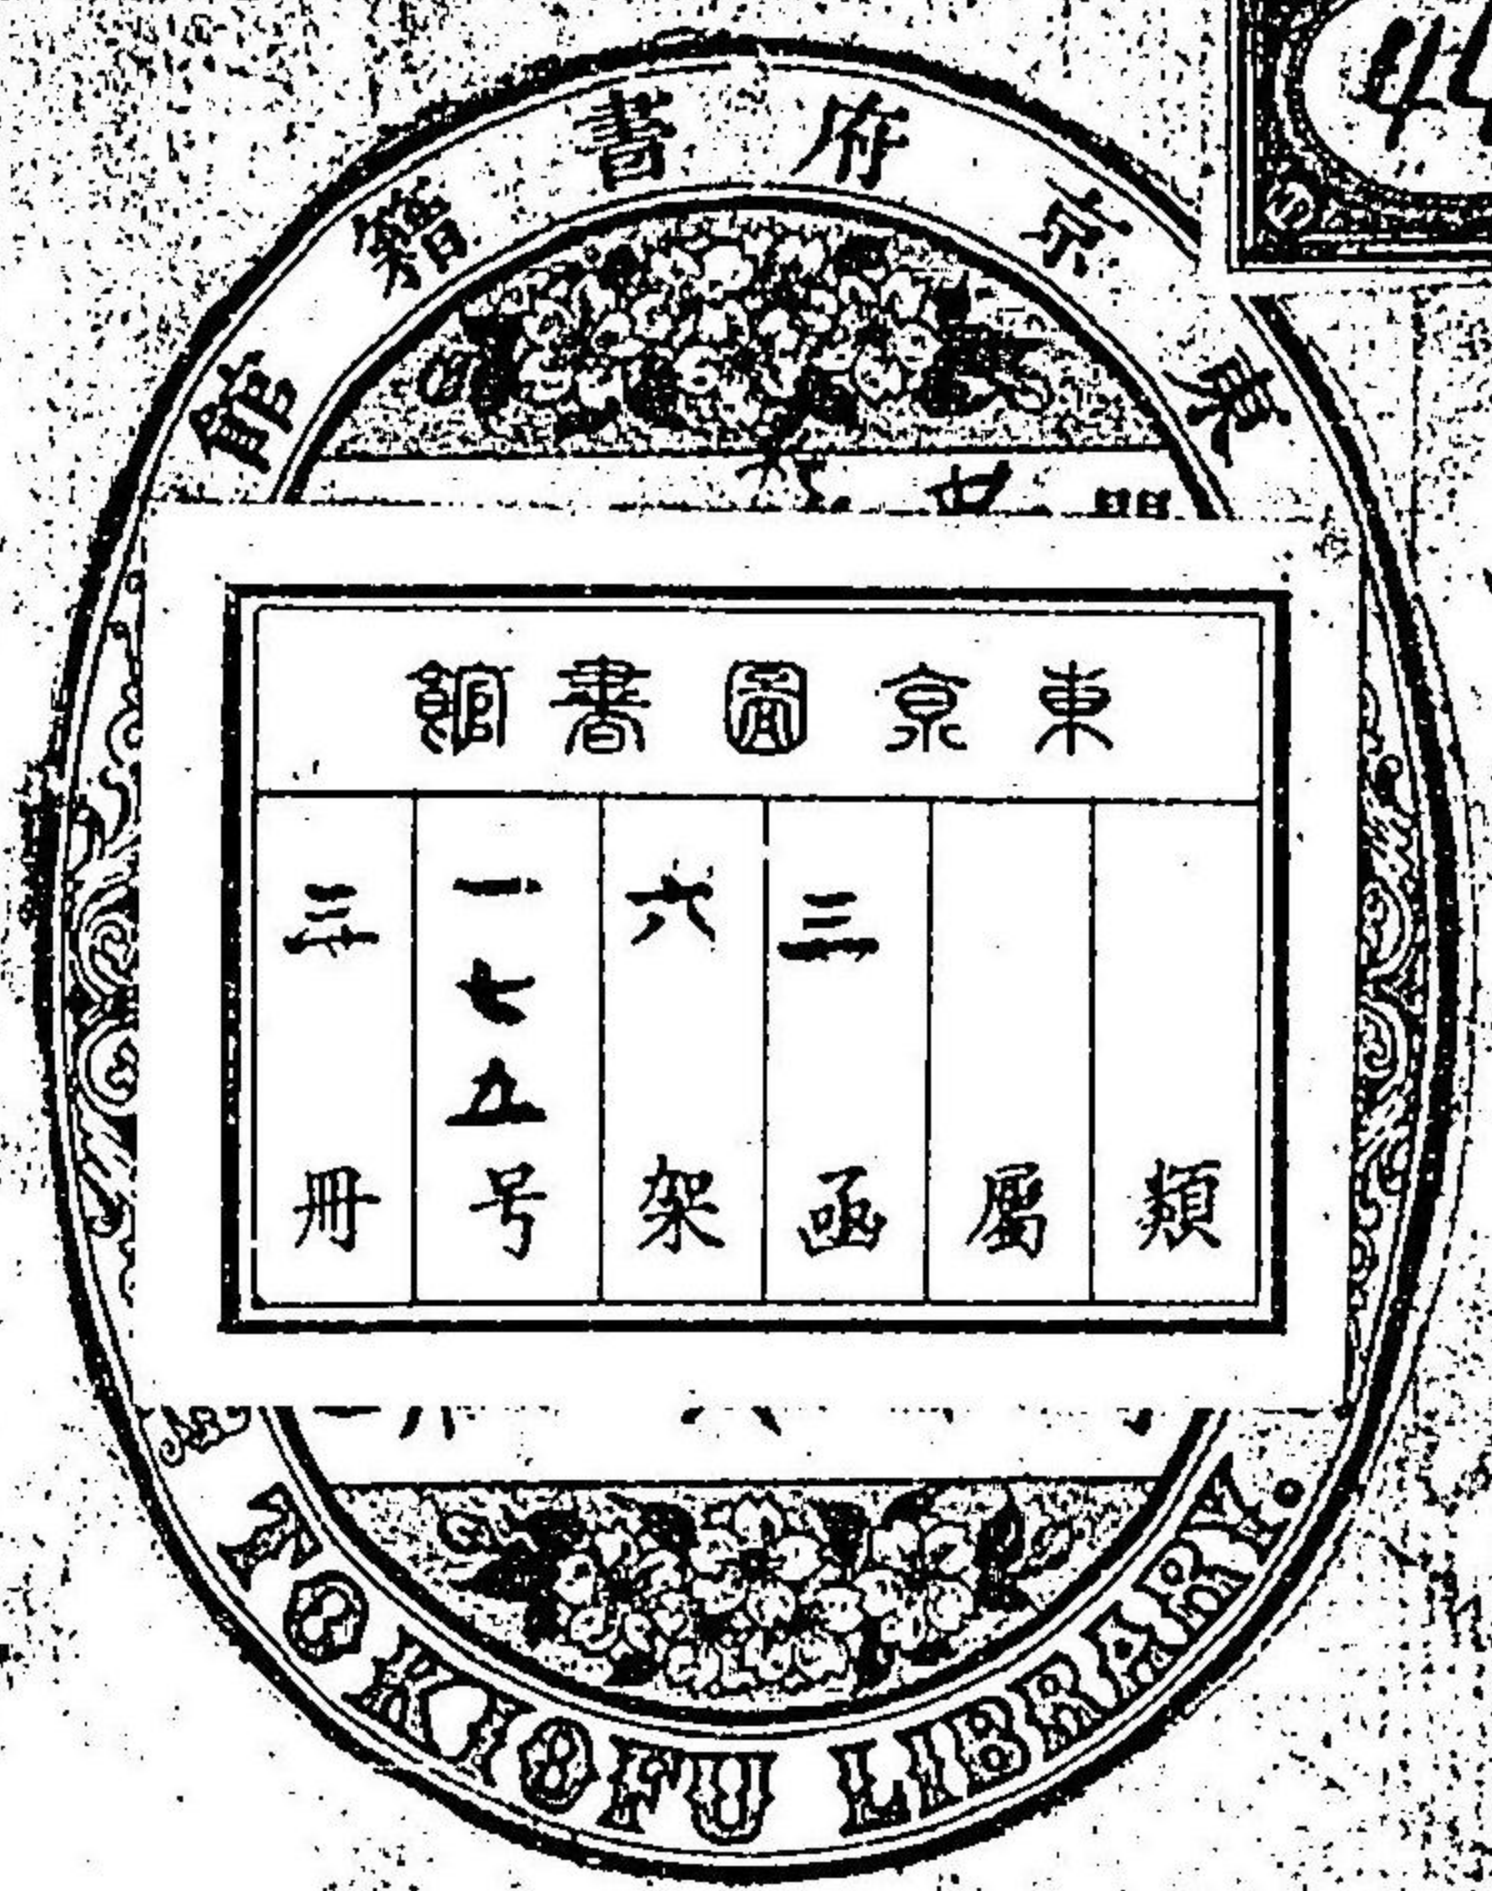 東京府書籍館
東京圖書館
類
屬
三函
六架
一七五号
三冊
TOKIOFU LIBRARY.